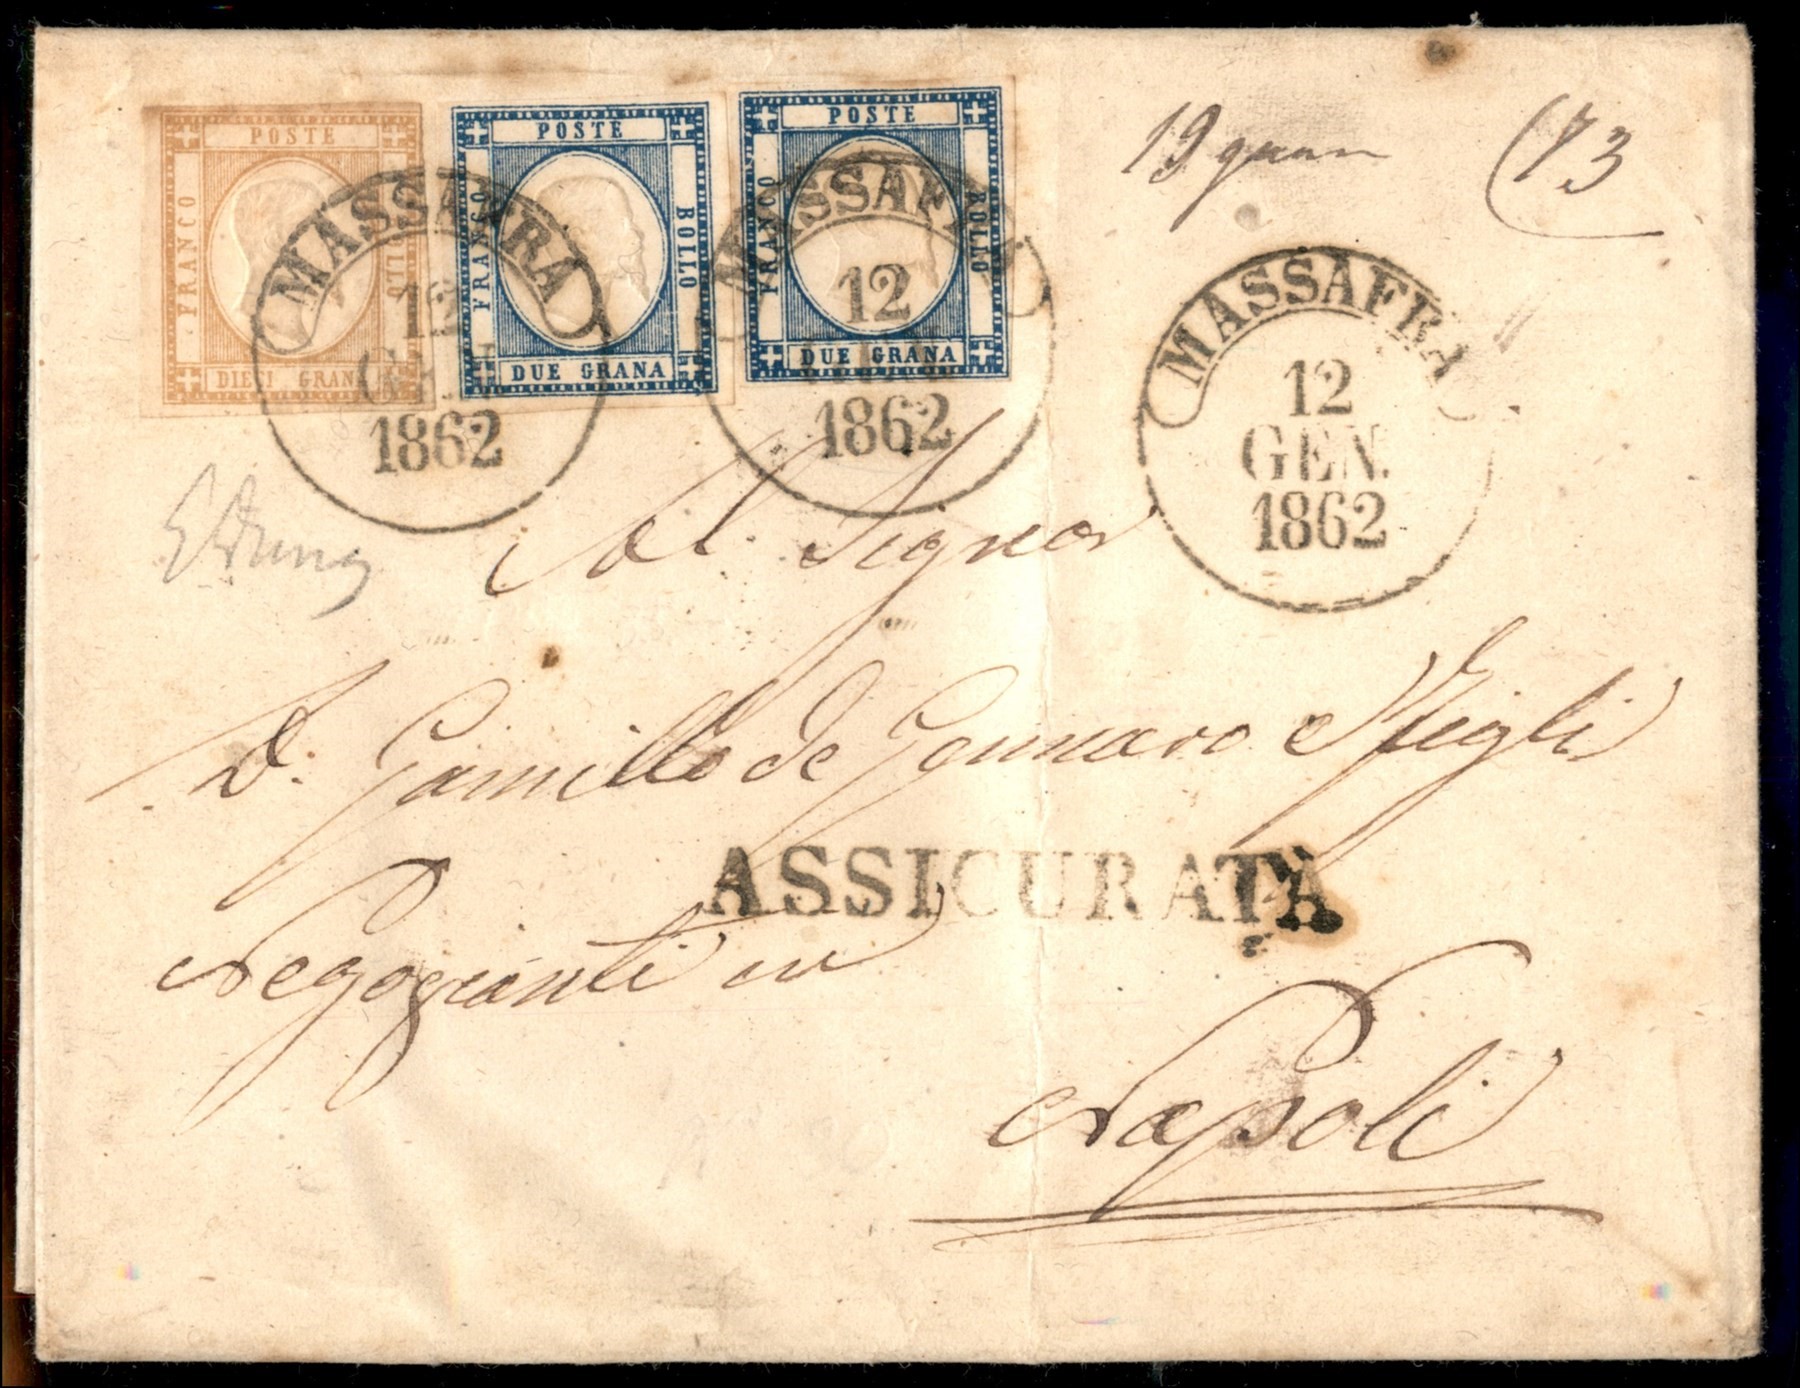 POSTE
FRANCO
BOLLO
DIECI GRANA
POSTE
FRANCO
BOLLO
DUE GRANA
POSTE
FRANCO
BOLLO
DUE GRANA
MASSAFRA
12
GEN.
1862
MASSAFRA
12
1862
19
73
MASSAFRA
12
GEN.
1862
Al Signor
D. Camillo de Gennaro e figli
ASSICURATA
Negozianti in
Napoli